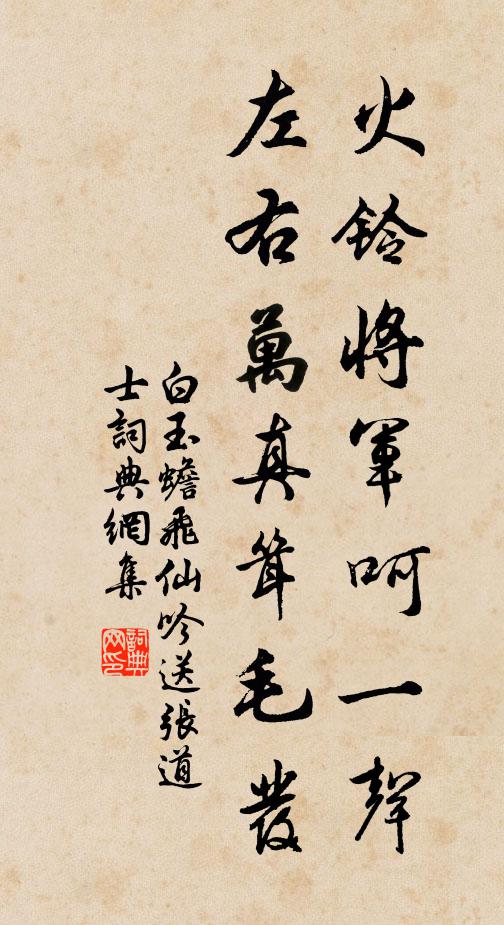 火鈴將軍呵一聲
左右萬真聳毛發
白玉蟾飛仙吟送張道
士詞典網集
詞典网印